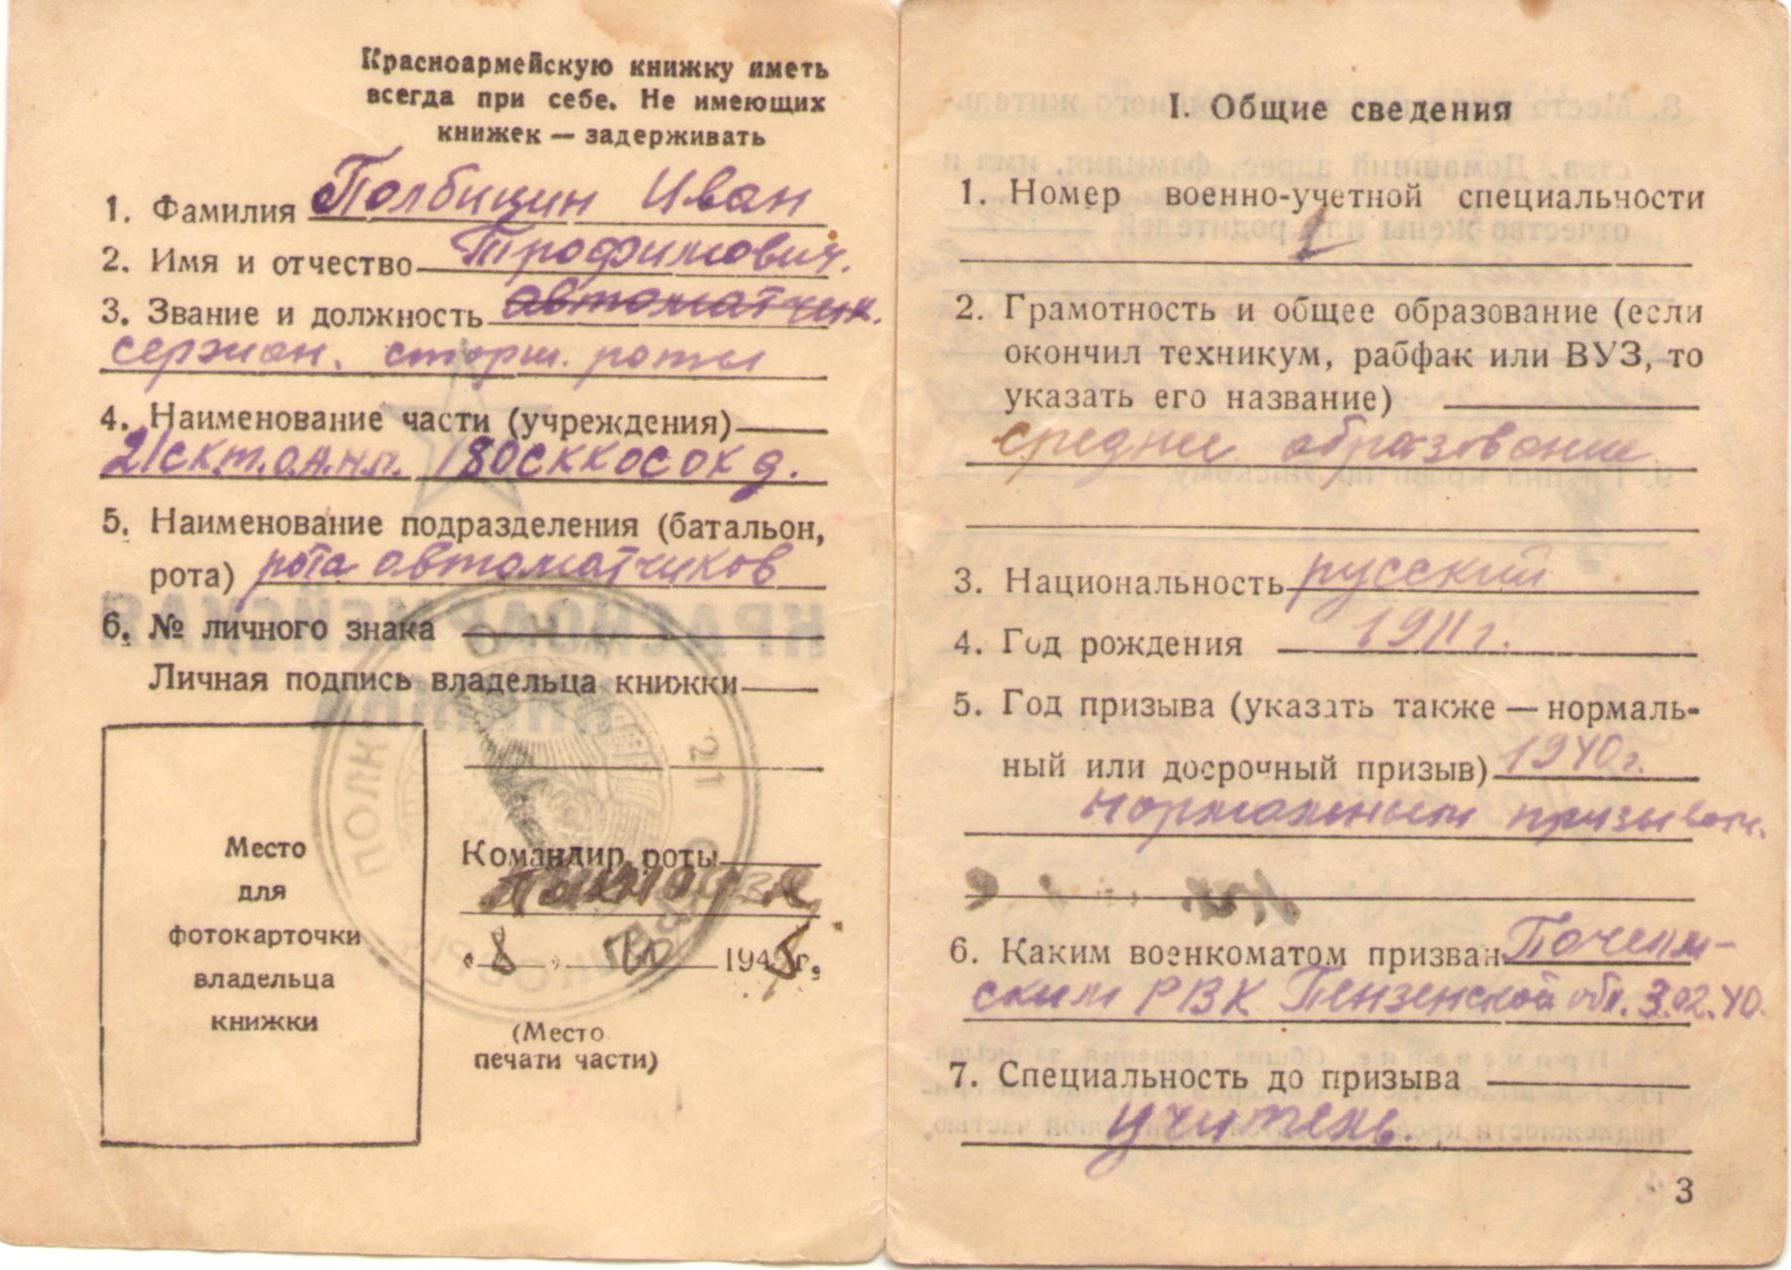 Красноармейскую книжку иметь
всегда при себе. Не имеющих
книжек — задерживать
1. Фамилия Полбицин Иван
2. Имя и отчество Трофимович.
3. Звание и должность автоматчик.
сержан. старш. роты
4. Наименование части (учреждения)
5. Наименование подразделения (батальон,
рота) рота автоматчиков
6. № личного знака
Личная подпись владельца книжки
Место
для
фотокарточки
владельца
книжки
Командир роты
« 8 » 1945 г.
(Место
печати части)
ПОЛК
21
I. Общие сведения
1. Номер военно-учетной специальности
1
2. Грамотность и общее образование (если
окончил техникум, рабфак или ВУЗ, то
указать его название)
средние образование
3. Национальность русский
4. Год рождения 1911 г.
5. Год призыва (указать также — нормаль-
ный или досрочный призыв) 1940 г.
нормальным призывом.
6. Каким военкоматом призван Почелм-
ским РВК Пензенской обл. 3.02.40.
7. Специальность до призыва
учитель.
3